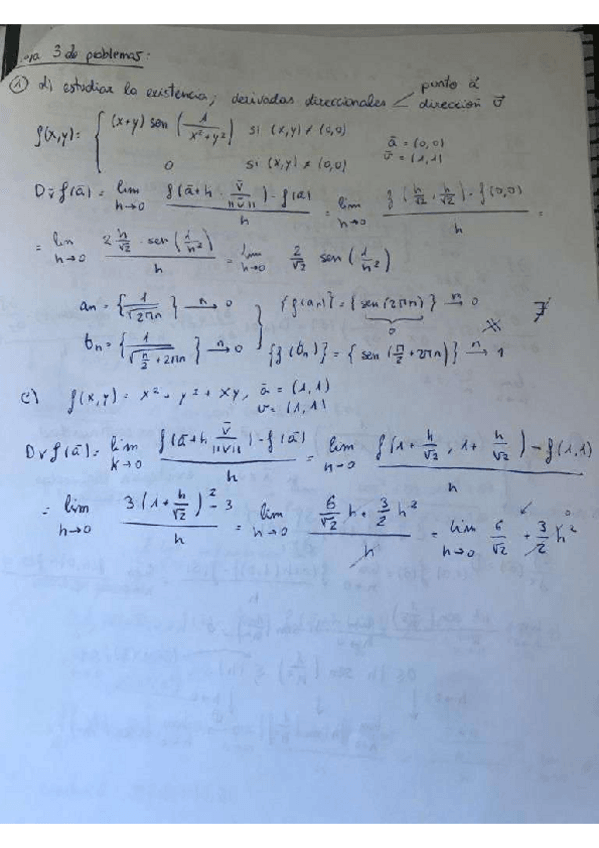 3 de problemas:
① d) estudiar la existencia; derivadas direccionales < punto ā
dirección v̄
f(x,y) = { (x+y) sen (1/(x²+y²)) si (x,y) ≠ (0,0)
0 si (x,y) = (0,0)
ā = (0,0)
v̄ = (1,1)
D v̄ f(ā) = lim h→0 (f(ā + h · v̄/||v̄||) - f(ā))/h = lim h→0 (f(h/√2, h/√2) - f(0,0))/h =
= lim h→0 (2 h/√2 · sen(1/h²))/h = lim h→0 2/√2 sen(1/h²)
an = {1/√(2πn)} →n 0 {f(an)} = {sen(2πn)} →n 0 ∄
0
bn = {1/√(π/2 + 2πn)} →n 0 {f(bn)} = {sen(π/2 + 2πn)} →n 1
e) f(x,y) = x² + y² + xy, ā = (1,1)
v̄ = (1,1)
D v f(ā) = lim h→0 (f(ā + h v̄/||v̄||) - f(ā))/h = lim h→0 (f(1 + h/√2, 1 + h/√2) - f(1,1))/h
= lim h→0 (3(1 + h/√2)² - 3)/h = lim h→0 (6/√2 h + 3/2 h²)/h = lim h→0 6/√2 + 3/2 h² 0